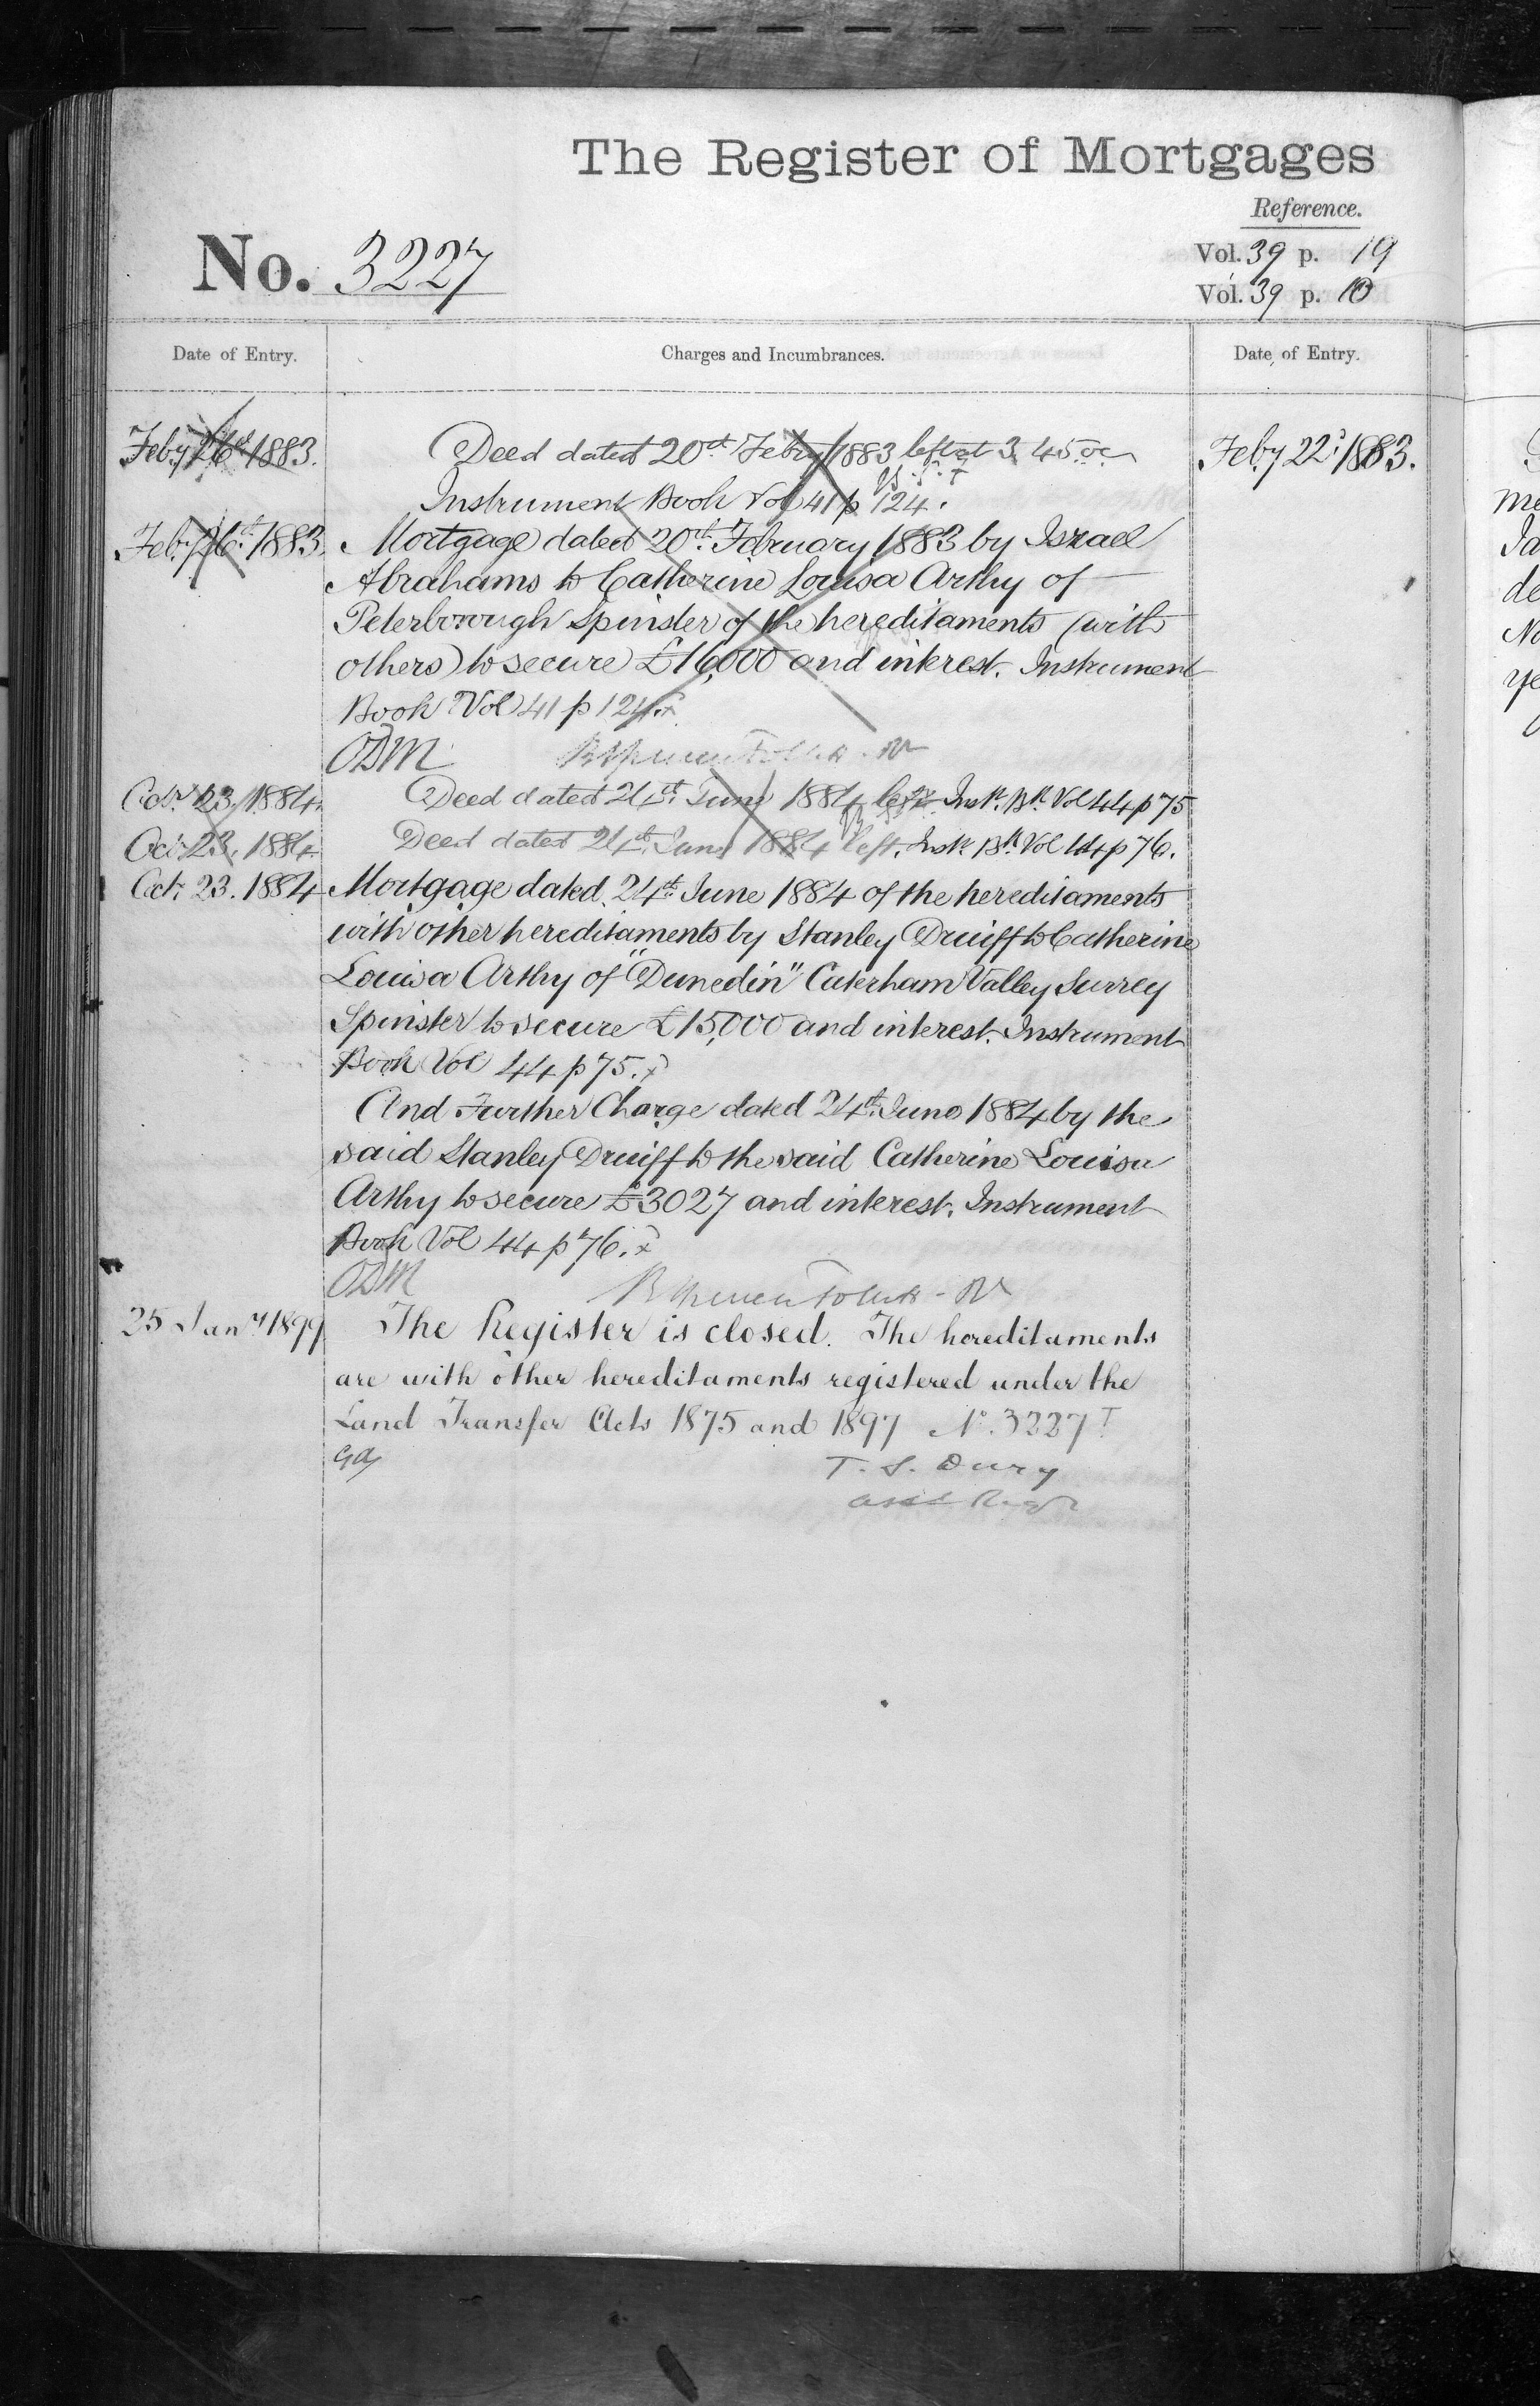 The Register of Mortgages
Reference.
No. 3227
Vol. 39 p. 19
Vol. 39 p. 10
Date of Entry.
Charges and Incumbrances.
Date of Entry.
Feby 26th 1883.
Deed dated 20th Feby 1883 left at 3.45
Feby 22d 1883.
Instrument Book Vol 41 p 124.
Feby 26th 1883.
Mortgage dated 20th February 1883 by Israel
Abrahams to Catherine Louisa Arthy of
Peterborough Spinster of the hereditaments (with
others) to secure £16,000 and interest. Instrument
Book Vol 41 p 124.
ODM
Octr 23. 1884.
Deed dated 24th June 1884 left Instr. Bk Vol 44 p 75
Octr 23. 1884.
Deed dated 24th June 1884 left. Instr. Bk Vol 44 p 76.
Octr 23. 1884
Mortgage dated 24th June 1884 of the hereditaments
with other hereditaments by Stanley Druiff to Catherine
Louisa Arthy of "Dunedin" Caterham Valley Surrey
Spinster to secure £15,000 and interest. Instrument
Book Vol 44 p 75.
And Further Charge dated 24th June 1884 by the
said Stanley Druiff to the said Catherine Louisa
Arthy to secure £3027 and interest. Instrument
Book Vol 44 p 76.
ODM
25 Jany 1899
The Register is closed. The hereditaments
are with other hereditaments registered under the
Land Transfer Acts 1875 and 1897 No. 3227 T
T. S. Dury
Asst Regr